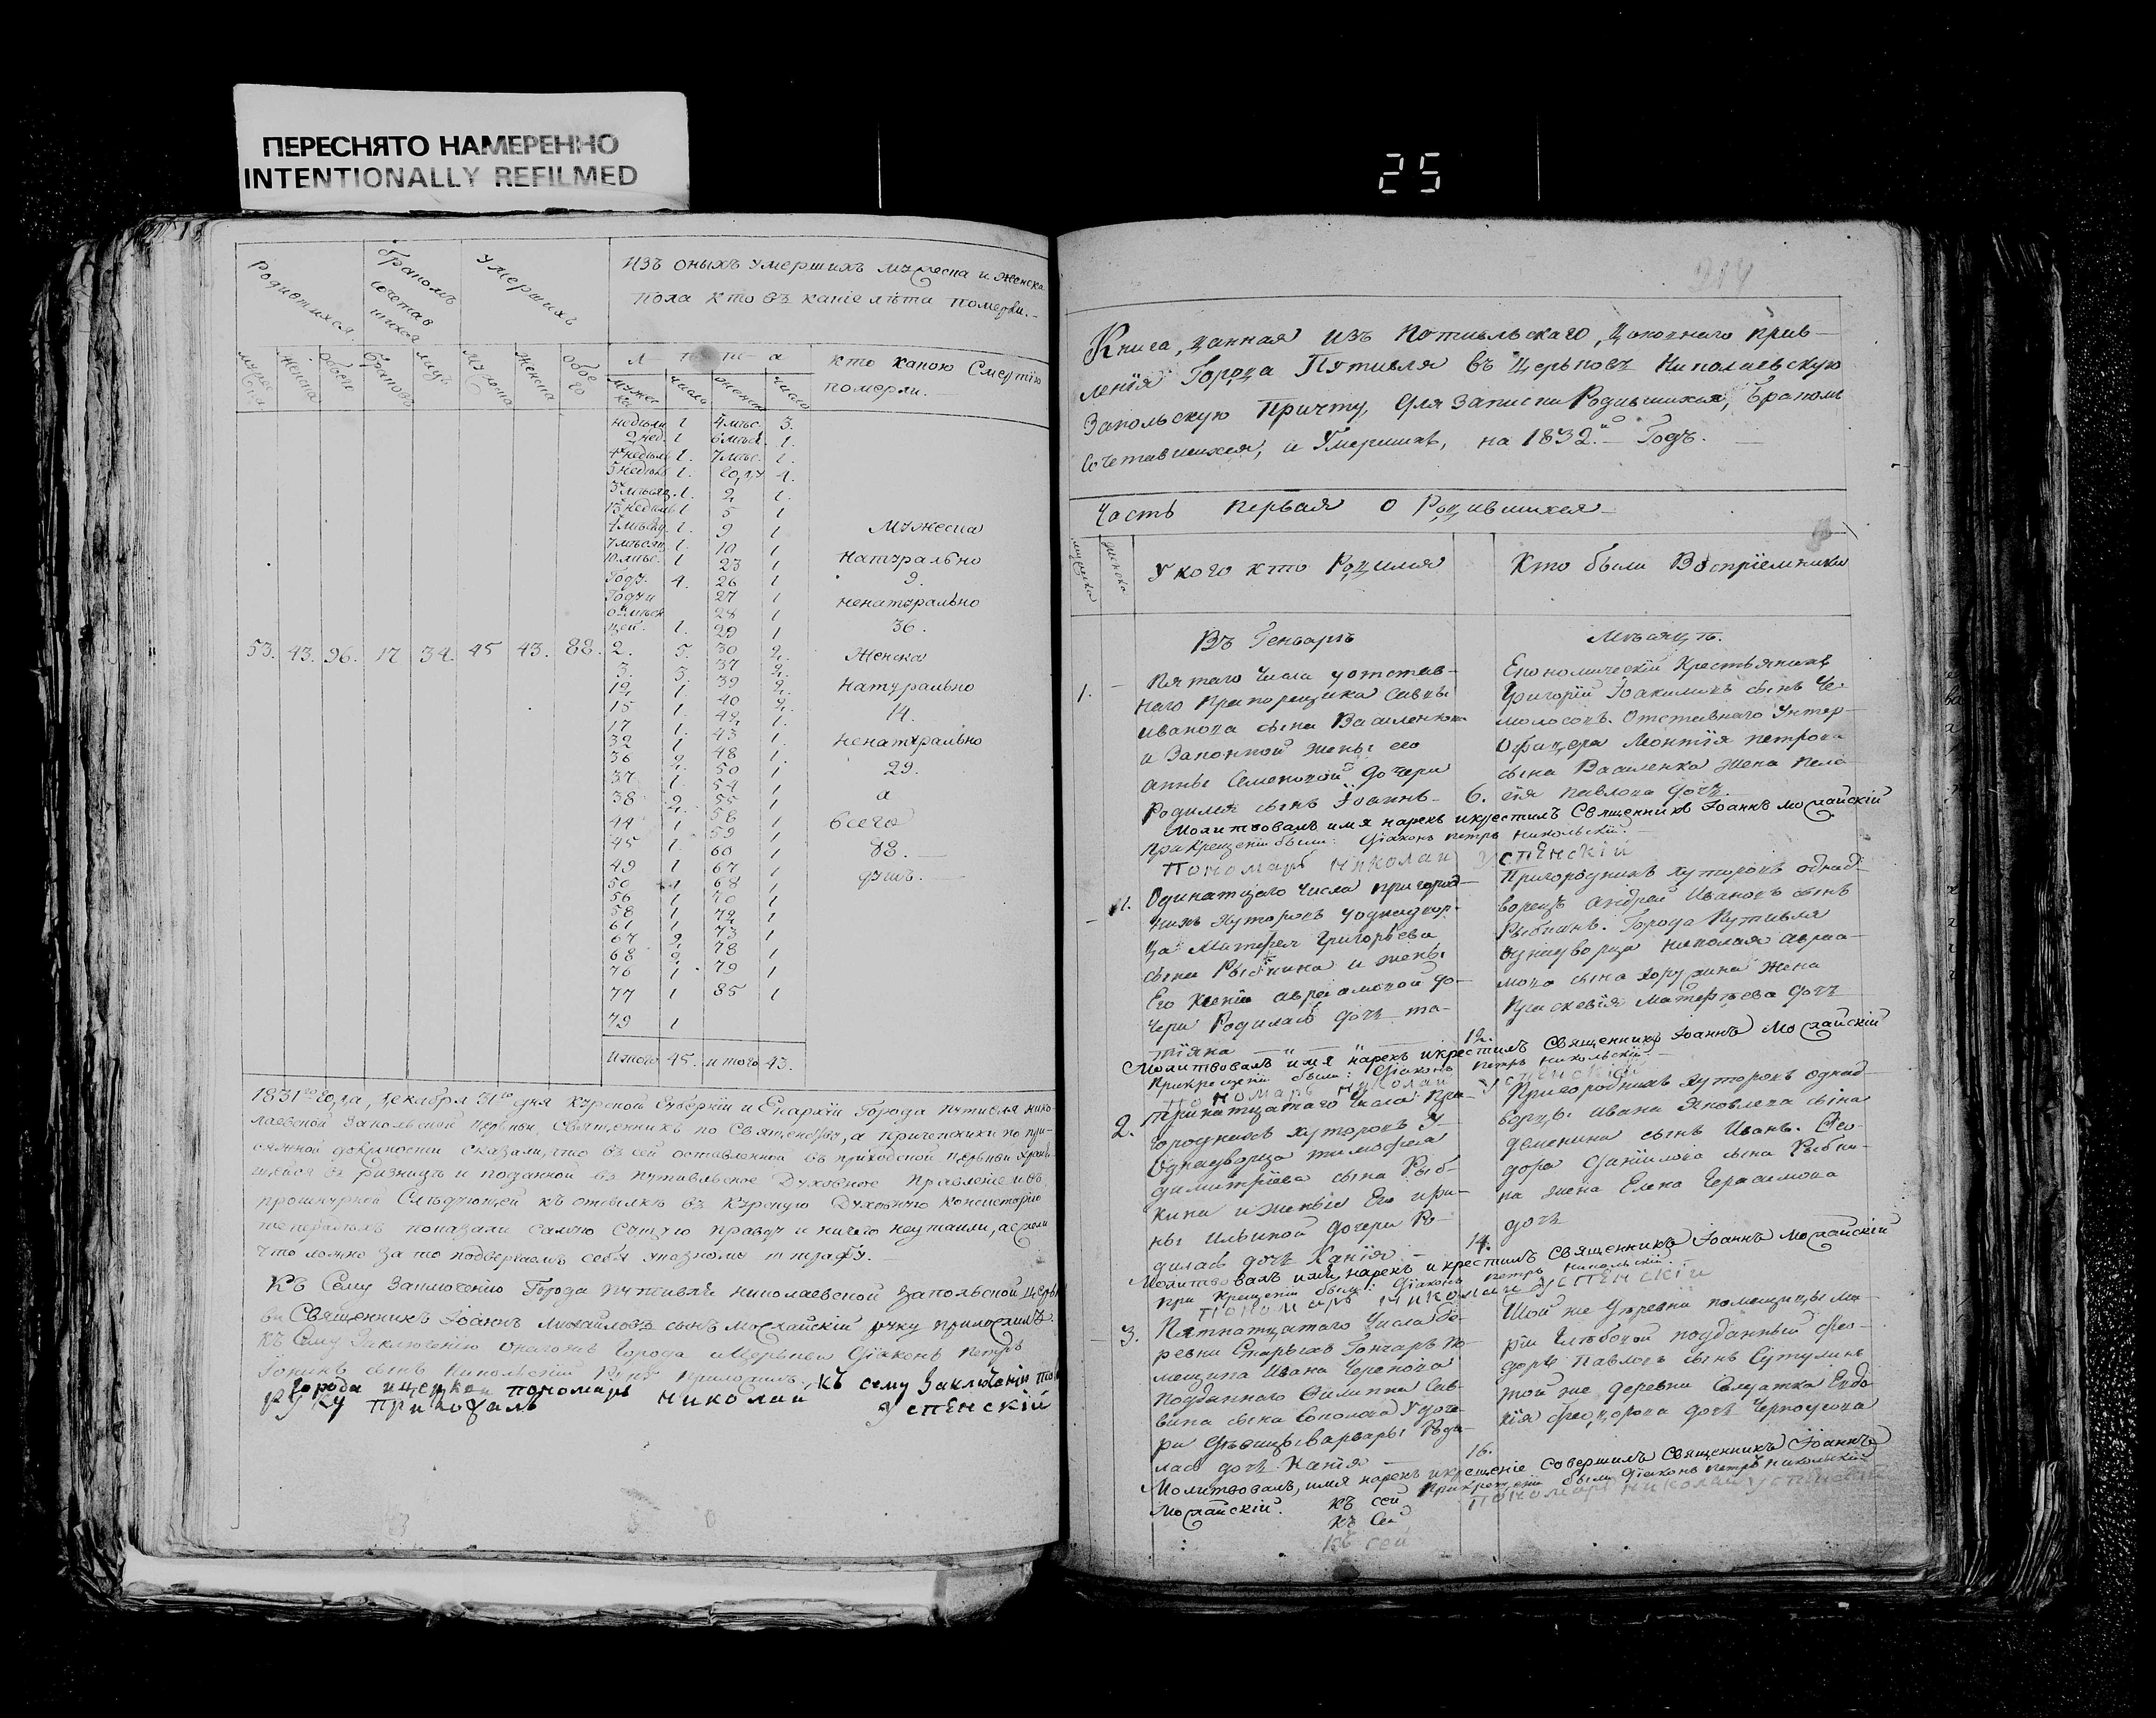 ПЕРЕСНЯТО НАМЕРЕННО
INTENTIONALLY REFILMED
25
Родившихся.
бракомъ сочетав шихся
Умершихъ
Изъ оныхъ умершихъ мужеска и женска
пола кто въ какіе лѣта померли.
мужеска женска обоего браковъ лицъ мужеска женска обоего
л ѣ т а
кто какою смертію
померли.
мужес ка число женска число
недѣли 1 4 мѣс. 3.
2 нед. 1 6 мѣс. 1.
4 недѣль 1. 7 мѣс. 1.
5 недѣль 1. году 1.
3 мѣсяц. 1. 2, 1.
13 недѣль 1 5 1
4 мѣсяц. 1. 9 1 Мужеска
7 мѣсяц. 1. 10 1
10 мѣс. 1 23 1 натурально
Году. 4. 26 1 9.
Году и 27 1
28 1 ненатурально
1. 29 1 36.
53. 43. 96. 17 34. 45 43. 88. 2. 5. 30 2. Женска
3. 3. 37 2.
12, 1. 39 2. натурально
15 1. 40 2. 14.
17 1. 42, 1.
32 1 43 1. ненатурально
36 2. 48 1. 29.
37 1. 50 1
38 2. 54 1 а
44 1 55 1 всего
45 1. 58 1
49 1 59 1 88.
50 1 60 1 душъ.
56 1 67 1
58 1 68 1
61 1 70 1
67 2, 72 1
68 2. 73 1
76 1 78 1
77 1 79 1
79 1 85 1
Итого 45. итого 43.
1831го года, декабря 31го дня Курской Губерніи и Епархіи Города Путивля Нико-
лаевской Запольской церкви, священникъ по священству, а причетники по при-
сяжной должности сказали, что въ сей оставленной въ приходской церкви
въ ризницѣ и поданной въ Путивльское Духовное Правленіе и въ
прошнурной слѣдующей къ отсылкѣ въ Курскую Духовную Консисторію
показали самую сущую правду и ничего неутаили, а ежели
что ложно за то подвергаемъ себя указному штрафу.
Къ сему заключенію Города Путивля Николаевской Запольской церк
ви Священникъ Іоаннъ Михайловъ сынъ Можайскій руку приложилъ.
Къ сему заключенію онагожъ Города и Церкви Діаконъ Петръ
сынъ Никольскій руку приложилъ. Къ сему заключенію
Города и церкви пономарь Николай Успенскій
руку приложилъ
214
Книга, данная изъ Путивльскаго, Духовнаго Прав-
ленія Города Путивля въ Церковь Николаевскую
Запольскую Причту, для записки Родившихся, Бракомъ
сочетавшихся, и Умершихъ, на 1832й Годъ.
Часть первая о Родившихся
мужеска женска
У кого кто Родился
Кто были Воспріемники
Въ Генварѣ
Мѣсяцѣ.
1.
Пятаго числа у отстав-
наго Прапорщика Саввы
Иванова сына Василенкова
и Законной жены его
Анны Семеновой дочери
Родился сынъ Іоаннъ 6.
Економическій Крестьянинъ
Григорій Іоакимовъ сынъ Че-
молосовъ. Отставнаго Унтер-
Офицера Леонтія Петрова
сына Василенка жена Пела
гія Павлова дочь
Молитвовалъ имя нарекъ и крестилъ Священникъ Іоаннъ Можайскій
При Крещеніи были: Діаконъ Петръ Никольскій.
Пономарь Николай Успенскій
1.
Одинатцаго числа Пригород-
нихъ Хуторовъ у однодвор-
ца Матфея Григорьева
сына Рыбкина и жены
Его Ксеніи Авраамовой до-
чери Родилась дочь Та-
тіяна 12.
Пригороднихъ хуторовъ однод-
ворецъ Андрей Ивановъ сынъ
Рыбкинъ. Города Путивля
однодворца Николая Авраа-
мова сына жена
Праскевія Матфѣева дочь
Молитвовалъ имя нарекъ и крестилъ Священникъ Іоаннъ Можайскій
При крещеніи были: Діаконъ Петръ Никольскій.
Пономарь Николай Успенскій
2.
Тринатцатаго числа При-
городнихъ хуторовъ у
Однодворца Тимофея
Димитріева сына Рыб-
кина и жены Его Ири-
ны Ильиной дочери Ро-
дилась дочь Ксенія 14.
Пригороднихъ хуторовъ однод
ворца Ивана Яковлева сына
Деменина сынъ Иванъ. Ѳео-
дора Даніилова сына Рыбки-
на жена Елена Герасимова
дочь
Молитвовалъ имя нарекъ и крестилъ Священникъ Іоаннъ Можайскій
При Крещеніи были: Діаконъ Петръ Никольскій.
Пономарь Николай Успенскій
3.
Пятнатцатаго Числа де-
ревни Старыхъ Гончаръ по-
мещика Ивана Черепова
подданнаго Филиппа Сав-
вина сына Соколова у доче-
ри дѣвицы Варвары Роди-
лась дочь Ксенія 16.
Той же деревни помещицы Ма-
ріи Глѣбовой подданный Ѳео-
доръ Павловъ сынъ Сутулинъ
той же деревни Солдатка Евдо
кія Ѳеодорова дочь Черноусова
Молитвовалъ, имя нарекъ и крещеніе совершилъ Священникъ Іоаннъ
Можайскій. При крещеніи были Діаконъ Петръ Никольскій
Пономарь Николай Успенскій
Къ сей
Къ сей
Къ сей